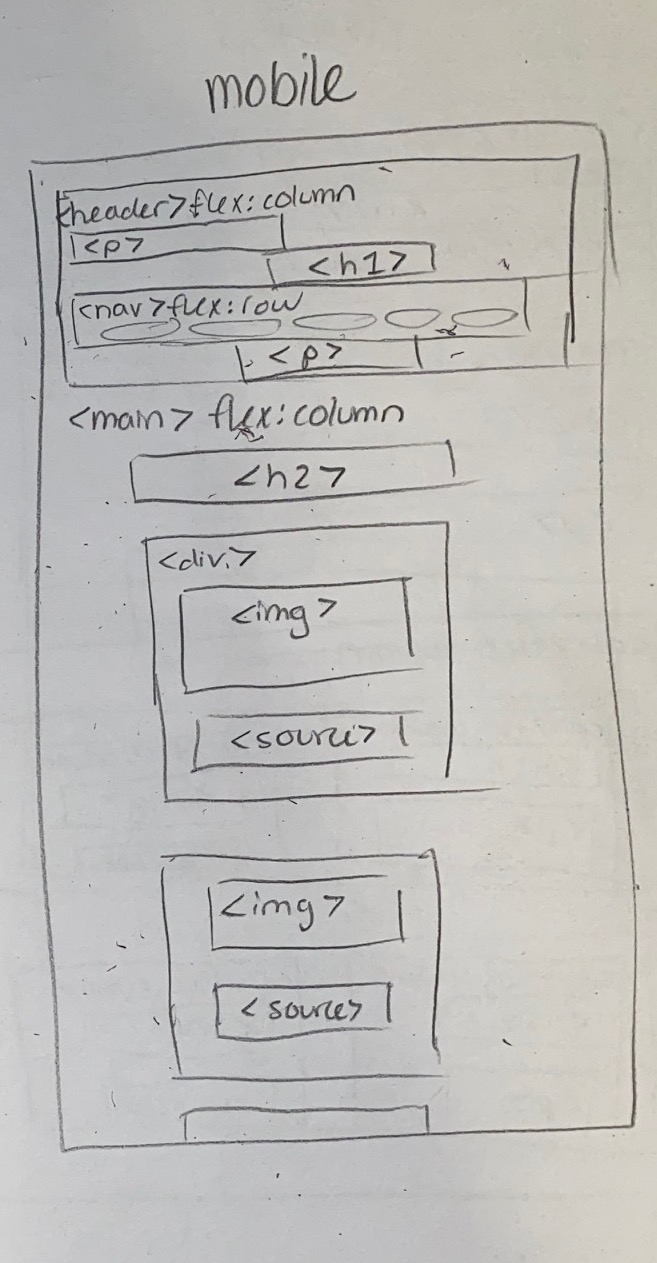 mobile
<header> flex: column
<p>
<h1>
<nav> flex: row
<p>
<main> flex: column
<h2>
<div>
<img>
<source>
<img>
<source>